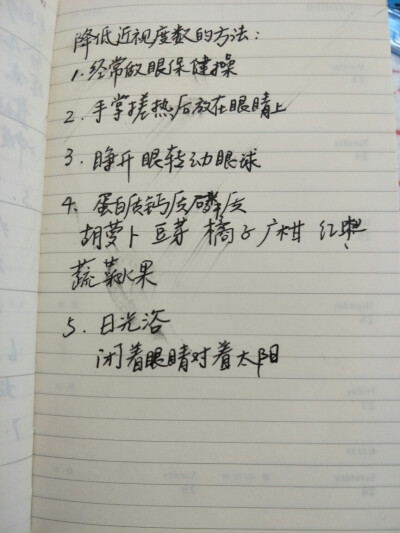 降低近视度数的方法:
1. 经常做眼保健操
2. 手掌搓热后放在眼睛上
3. 睁开眼转动眼球
4. 蛋白质钙质磷质
胡萝卜 豆芽 橘子 广柑 红枣
蔬菜水果
5. 日光浴
闭着眼睛对着太阳